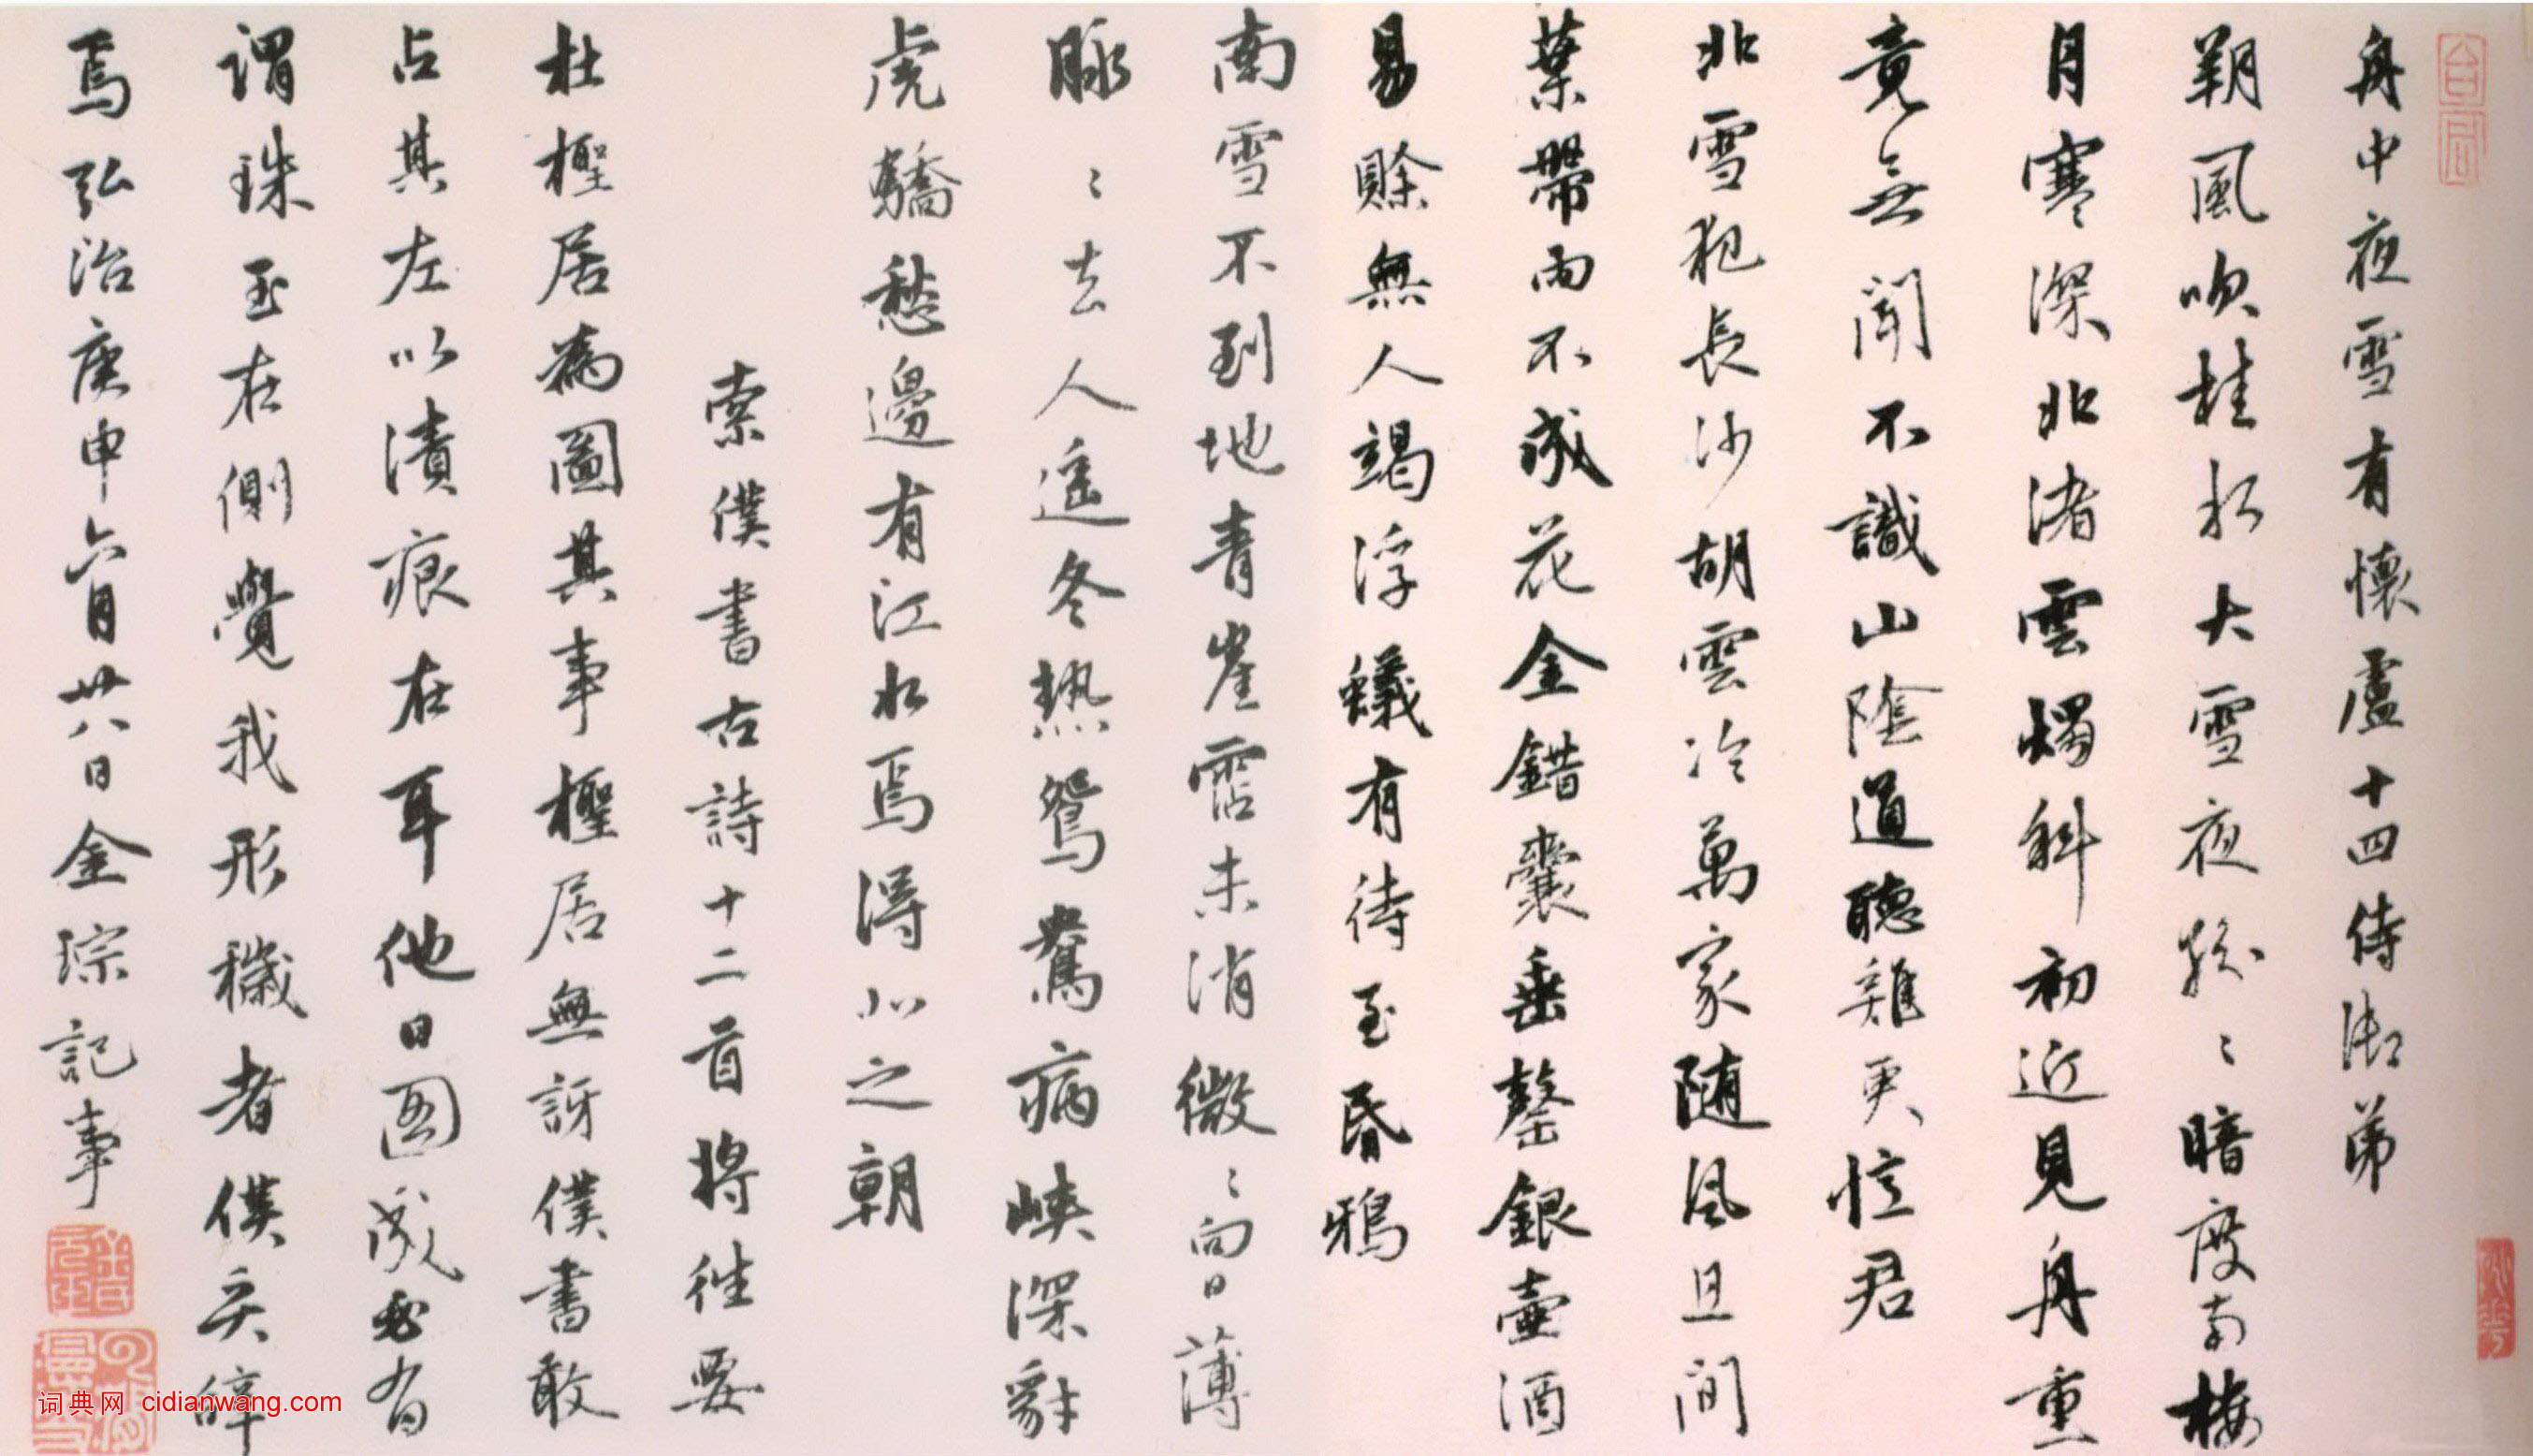 舟中夜雪有懷盧十四侍御弟
朔風吹桂水大雪夜紛〻暗度南樓
月寒深北渚雲燭斜初近見舟重
竟無聞不識山陰道聽雞更憶君
北雪犯長沙胡雲冷萬家隨風且間
葉帶雨不成花金錯囊垂罄銀壺酒
易賒無人竭浮蟻有待至昏鴉
南雪不到地青崖霑未消微〻向日薄
脉〻去人遥冬熱鴛鴦病峽深豺
虎驕愁邊有江水焉得北之朝
索僕書古詩十二首將往要
杜檉居為圖其事檉居無訝僕書敢
占其左以漬痕在耳他日圖成必有
謂珠玉在側覺我形穢者僕亦
焉弘治庚申六月廿八日金琮記事
词典网 cidianwang.com